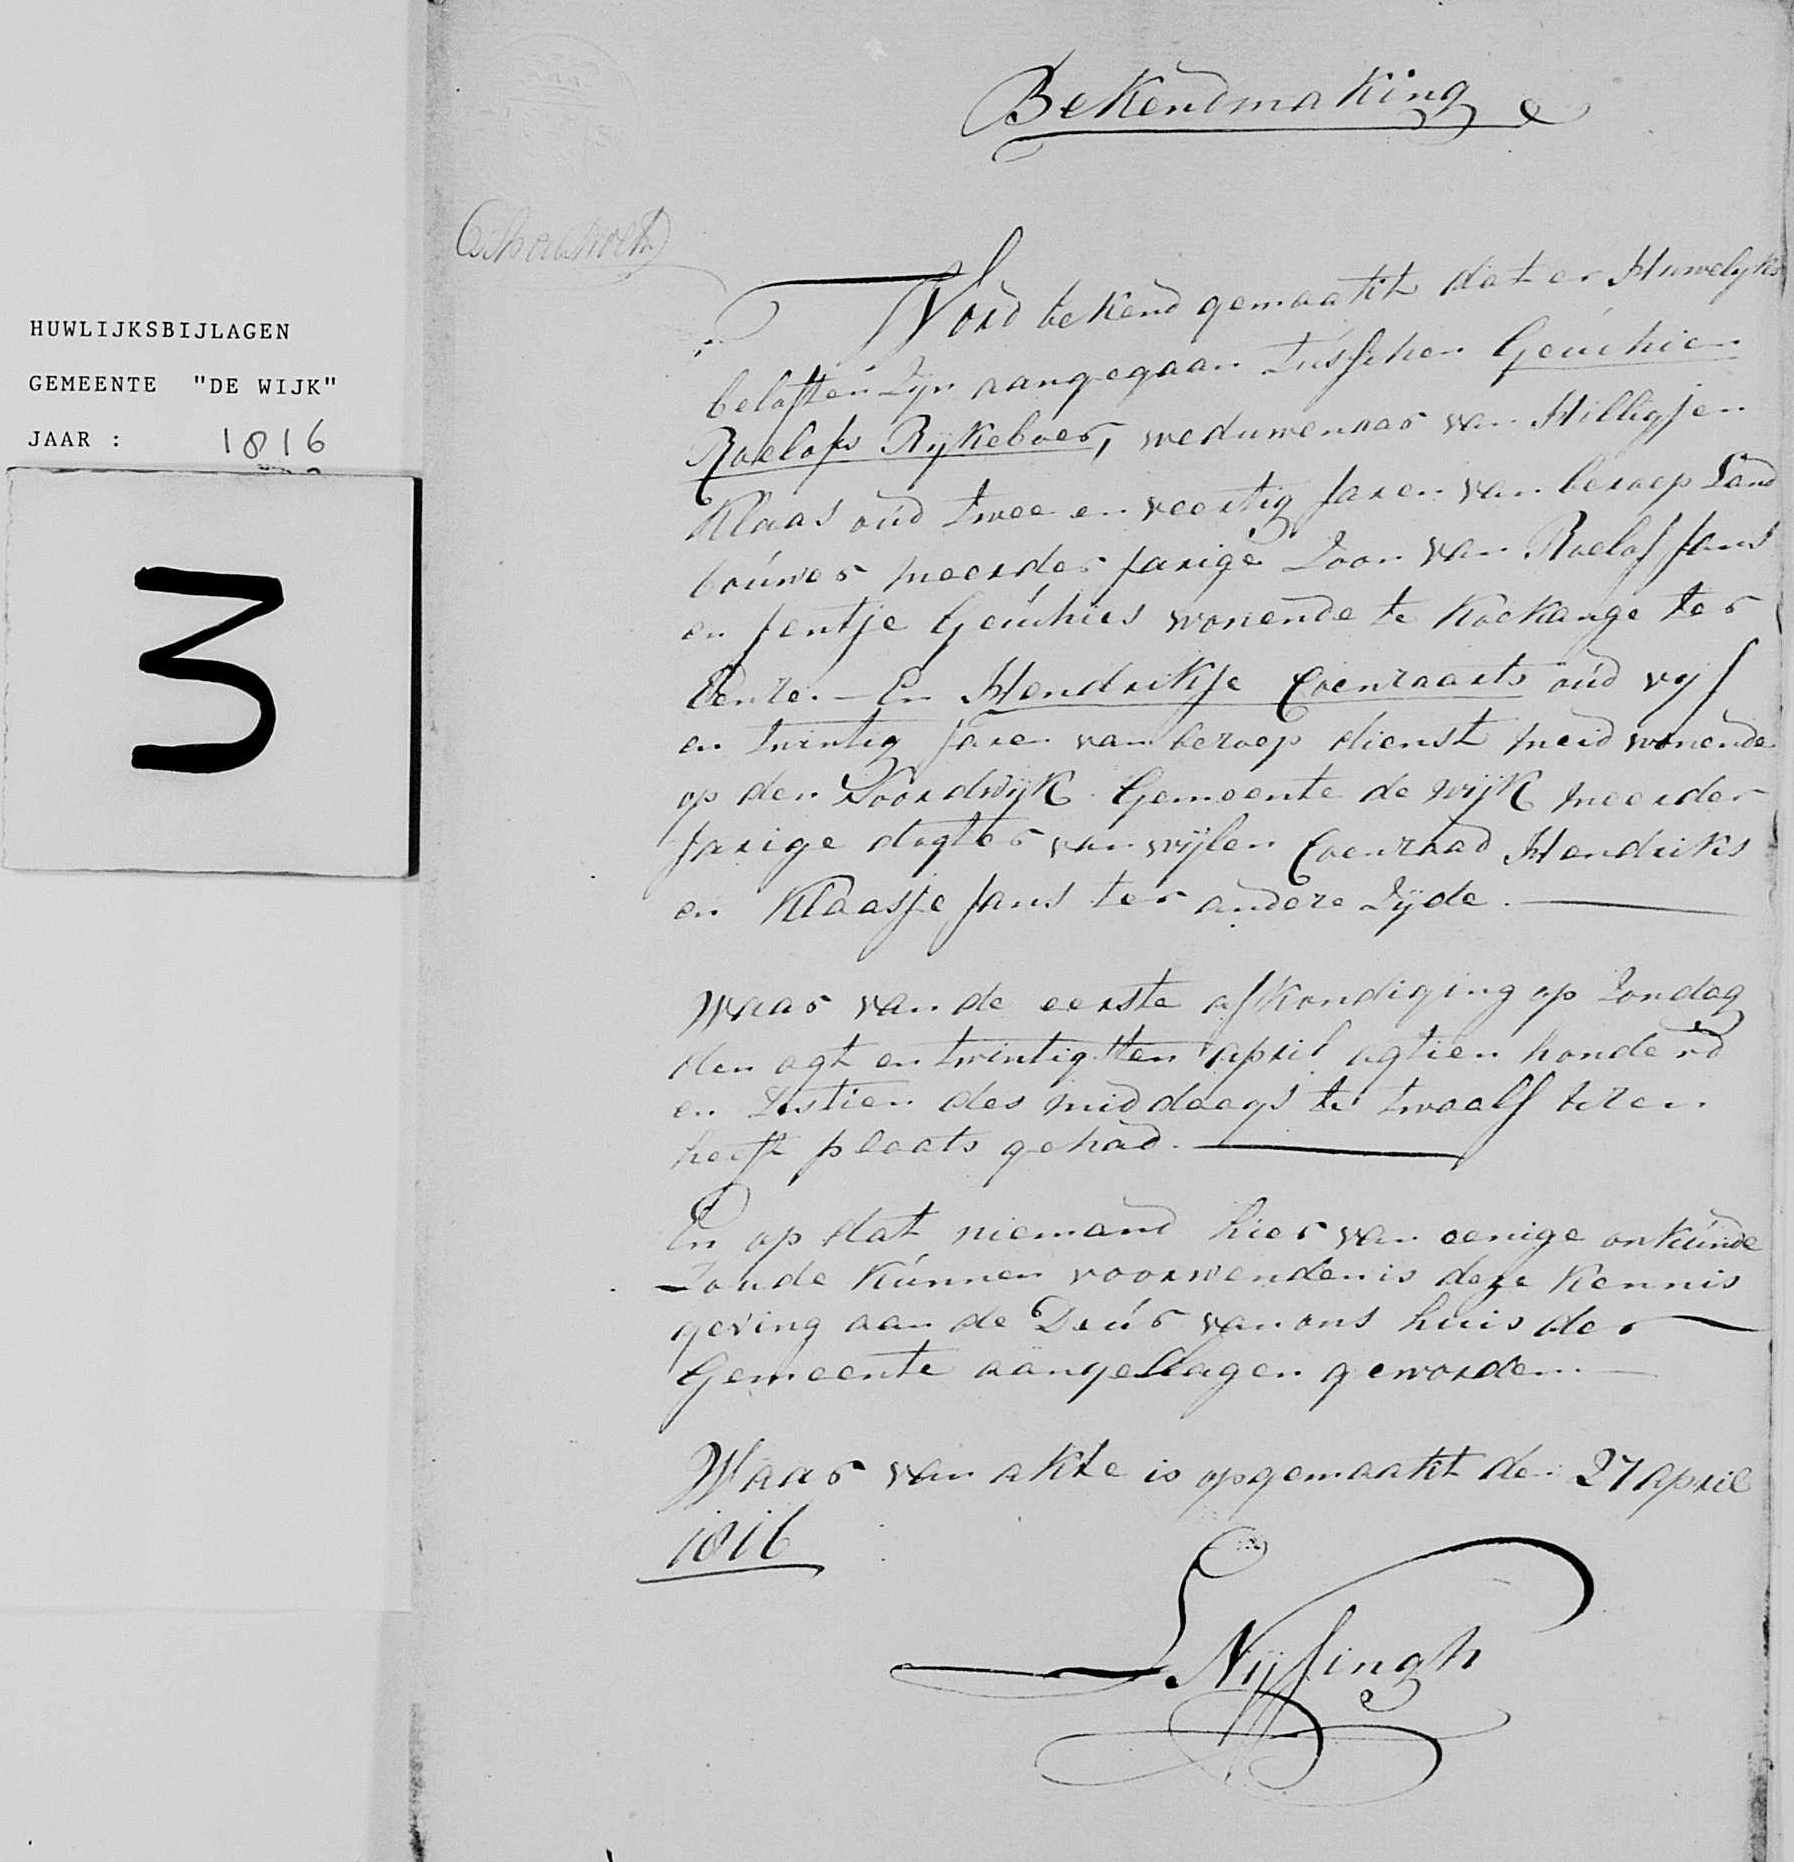 HUWLIJKSBIJLAGEN
GEMEENTE "DE WIJK"
JAAR : 1816
3
Bekendmaking
Word bekend gemaakt dat er Huwelyks
beloften Zyn aangegaan tusschen Geuchien
Roelofs Rykeboer, weduwenaar van Hilligjen
Klaas oud twee en veertig Jaren van beroep Land
bouwer meerder jarige Zoon van Roelof Jans
en Jentje Geuchies wonende te Koekange ter
Eenre. — En Hendrikje Coenraats oud vyf
en twintig Jaren van beroep dienst meid wonende
op den Noordwijk Gemeente de Wijk meerder
Jarige dogter van wijlen Coenraad Hendriks
en Klaasje Jans ter andere Zijde. —
Waar van de eerste afkondiging op Zondag
den agt en twintigsten april agtien honderd
en Zestien des middaags te twaalf uren
heeft plaats gehad. —
En op dat niemand hier van eenige onkunde
Zoude Kunnen voorwenden is deze Kennis
geving aan de Deur van ons huis der
Gemeente aangeslagen geworden. —
Waar van akte is opgemaakt den 27 april
1816
Nijsingh